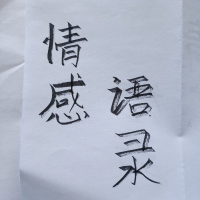 情感
语录